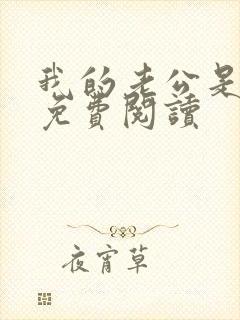 我的老公是
免費閱讀
夜宵草